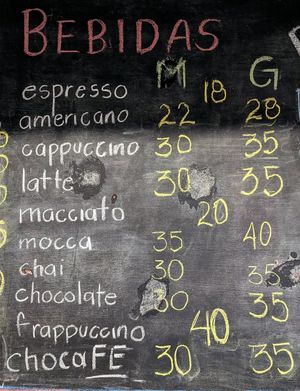 BEBIDAS
M G
espresso 18
americano 22 28
cappuccino 30 35
latte 30 35
macciato 20
mocca 35 40
chai 30 35
chocolate 30 35
frappuccino 40
chocaFE 30 35